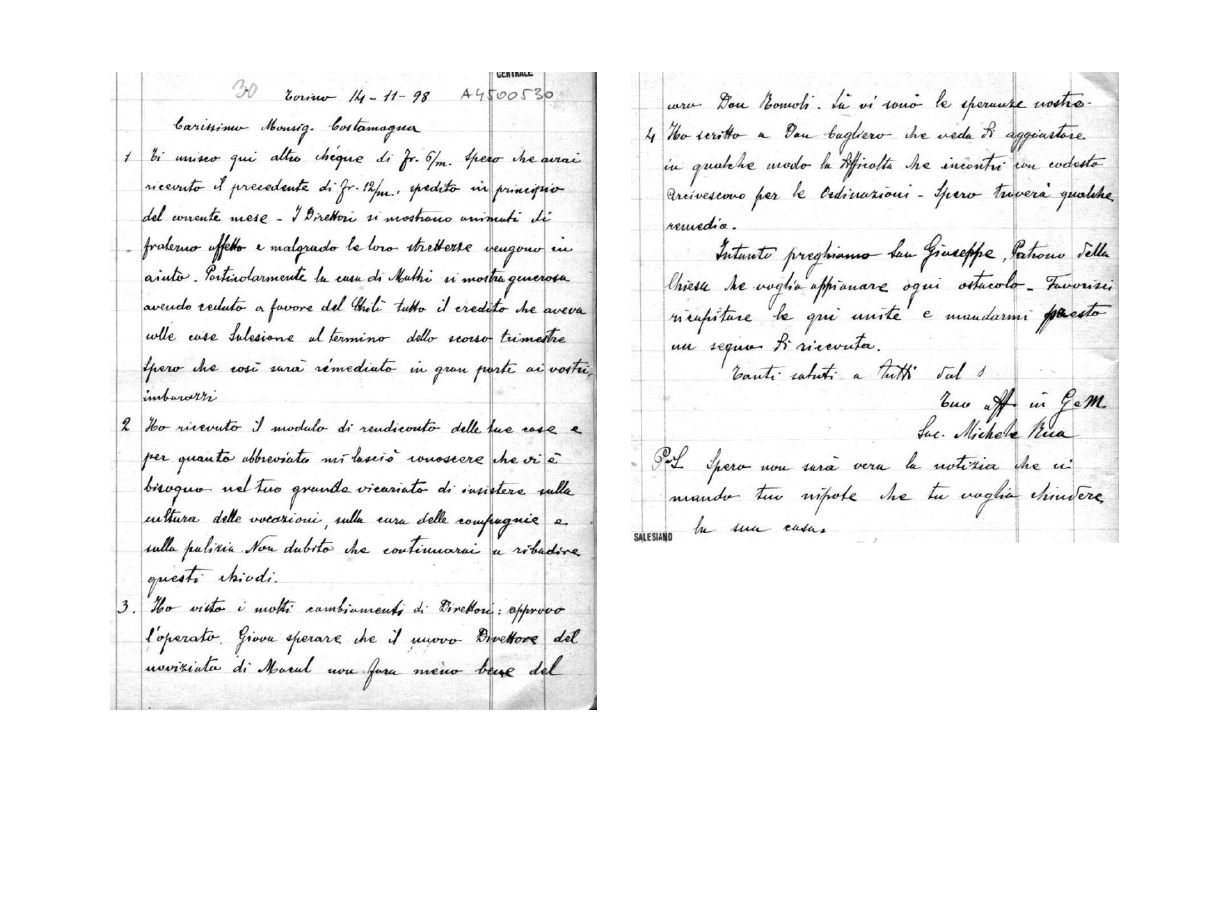 CENTRALE
30 Torino 14-11-98 A4500530
Carissimo Monsig. Costamagna
1 Ti unisco qui altro chéque di fr. 6/m. Spero che avrai
ricevuto il precedente di fr. 12/m. spedito in principio
del corrente mese - I Direttori si mostrano animati di
fraterno affetto e malgrado le loro strettezze vengono in
aiuto. Particolarmente la casa di Mathi si mostra generosa
avendo ceduto a favore del Chilì tutto il credito che aveva
colle case Salesiane al termine dello scorso trimestre
Spero che così sarà rémediato in gran parte ai vostri
imbarazzi
2 Ho ricevuto il modulo di rendiconto delle tue case e
per quanto abbreviato mi lasciò conoscere che vi è
bisogno nel tuo grande vicariato di insistere sulla
cultura delle vocazioni, sulla cura delle compagnie e
sulla pulizia Non dubito che continuarai a ribadire
questi chiodi.
3. Ho visto i molti cambiamenti di Direttori: approvo
l'operato. Giova sperare che il nuovo Direttore del
noviziato di Macul non fara meno bene del
caro Don Romoli. Là vi sono le speranze nostre.
4 Ho scritto a Don Cagliero che veda di aggiustare
in qualche modo la difficoltà che incontri con codesto
Arcivescovo per le Ordinazioni - Spero troverà qualche
remedio.
Intanto preghiamo San Giuseppe, Patrono della
Chiesa che voglia appianare ogni ostacolo - Favorisci
ricapitare le qui unite e mandarmi presto
un segno di ricevuta.
Tanti saluti a tutti dal
Tuo aff in G e M
Sac. Michele Rua
PS Spero non sarà vera la notizia che ci
mando tuo nipote che tu voglia chiudere
la sua casa.
SALESIANO